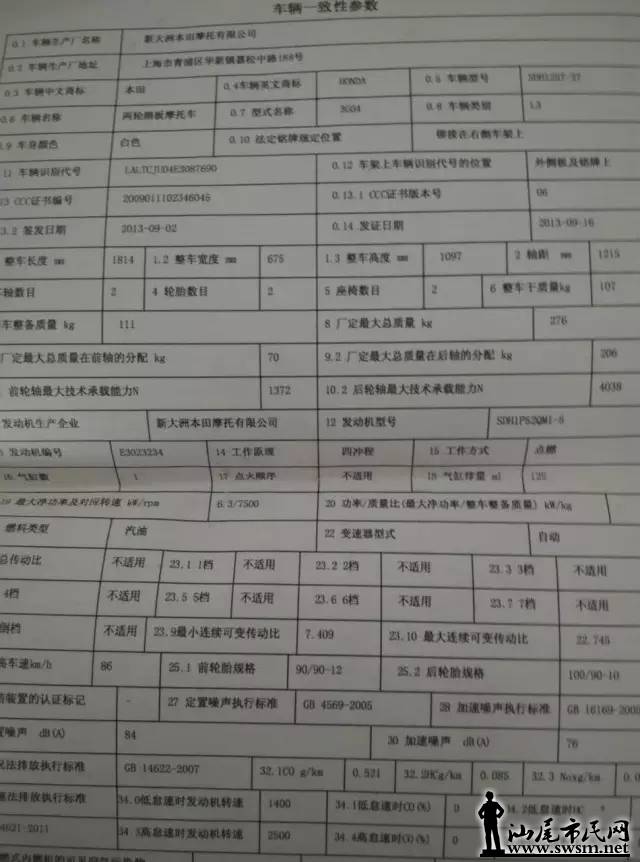 车辆一致性参数
0.1 车辆生产厂名称 新大洲本田摩托有限公司
0.2 车辆生产厂地址 上海市青浦区华新镇嘉松中路188号
0.3 车辆中文商标 本田 0.4车辆英文商标 HONDA 0.5 车辆型号
0.6 车辆名称 两轮踏板摩托车 0.7 型式名称 0.8 车辆类别 L3
0.9 车身颜色 白色 0.10 法定铭牌规定位置 铆接在右侧车架上
11 车辆识别代号 0.12 车架上车辆识别代号的位置 外侧板及铭牌上
13 CCC证书编号 2009011102346045 0.13.1 CCC证书版本号 06
3.2 签发日期 2013-09-02 0.14 发证日期 2013-09-16
整车长度 mm 1814 1.2 整车宽度 mm 675 1.3 整车高度 mm 1097 2 轴距 mm 1215
车轴数目 2 4 轮胎数目 2 5 座椅数目 2 6 整车干质量kg 107
车整备质量 kg 111 8 厂定最大总质量 kg 276
厂定最大总质量在前轴的分配 kg 70 9.2 厂定最大总质量在后轴的分配 kg 206
前轮轴最大技术承载能力N 1372 10.2 后轮轴最大技术承载能力N 4038
发动机生产企业 新大洲本田摩托有限公司 12 发动机型号
发动机编号 E3023234 14 工作原理 四冲程 15 工作方式 点燃
16 气缸数 1 17 点火顺序 不适用 18 气缸排量 ml 125
19 最大净功率及对应转速 kW/rpm 6.3/7500 20 功率/质量比(最大净功率/整车整备质量) kW/kg
燃料类型 汽油 22 变速器型式 自动
总传动比 不适用 23.1 1档 不适用 23.2 2档 不适用 23.3 3档 不适用
4档 不适用 23.5 5档 不适用 23.6 6档 不适用 23.7 7档 不适用
倒档 不适用 23.9最小连续可变传动比 7.409 23.10 最大连续可变传动比 22.745
高车速km/h 86 25.1 前轮胎规格 90/90-12 25.2 后轮胎规格 100/90-10
装置的认证标记 - 27 定置噪声执行标准 GB 4569-2005 28 加速噪声执行标准 GB 16169-2005
置噪声 dB(A) 84 30 加速噪声 dB(A) 76
况法排放执行标准 GB 14622-2007 32.1CO g/km 0.521 32.2HCg/km 0.085 32.3 Noxg/km 0.0
速法排放执行标准 34.0低怠速时发动机转速 1400 34.1低怠速时CO(%) 0 34.2低怠速时HC
14621-2011 34.3高怠速时发动机转速 2500 34.4高怠速时CO(%) 0
汕尾市民网
www.swsm.net